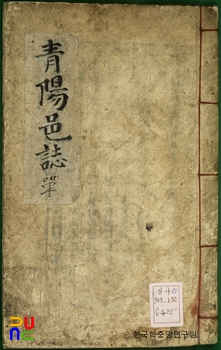 青陽邑誌 單
915.132
C422
© 한국학중앙연구원